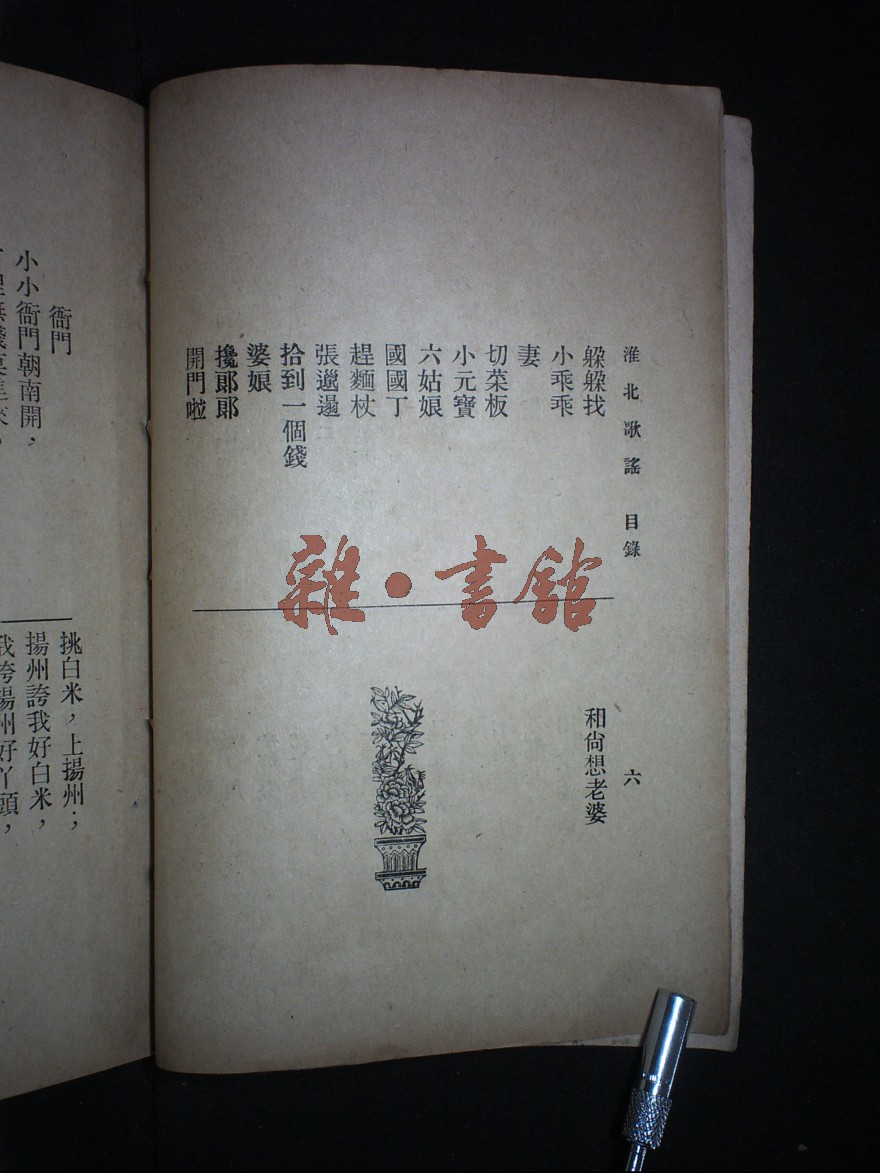 淮北歌謠 目錄 六
躲躲找
小乖乖
妻
切菜板
小元寶
六姑娘
國國丁
趕麵杖
張邋遢
拾到一個錢
婆娘
攙郞郞
開門啦
和尙想老婆
雜·書館
挑白米，上揚州；
揚州誇我好白米，
我誇揚州好丫頭，
衙門
小小衙門朝南開，